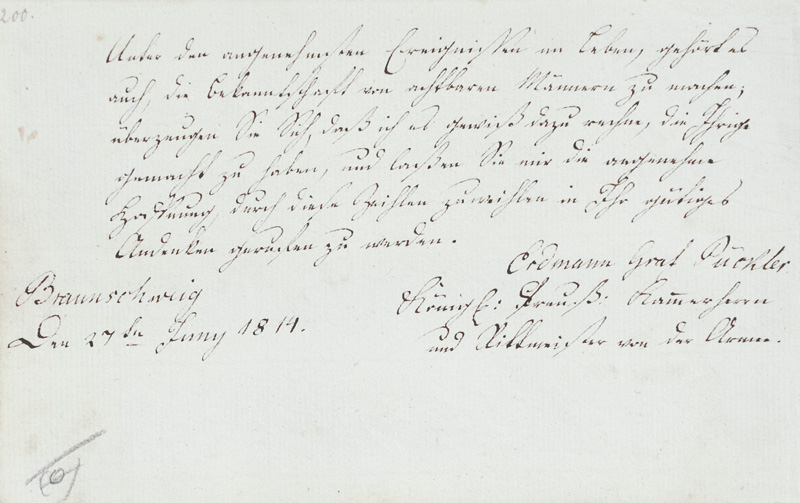 200.
Unter den angenehmsten Ereignissen im Leben, gehört es
auch, die Bekanntschaft von achtbaren Männern zu machen;
überzeugen Sie Sich, daß ich es gewiß dazu rechne, die Ihrige
gemacht zu haben, und laßen Sie mir die angenehme
Hoffnung, durch diese Zeihlen zuweihlen in Ihr gütiges
Andenken gerufen zu werden.
Erdmann Graf Pückler
Braunschweig
Königl: Preuß: Kammerherrn
Den 27ten Juny 1814.
und Rittmeister von der Armee.